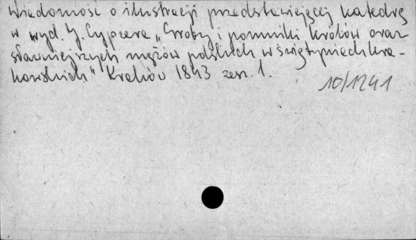 Wiadomość o ilustracji przedstawiającej katedrę
w wyd. J. Cypcera „Groby i pomniki królów oraz
sławniejszych mężów polskich w świątyniach kra-
kowskich" Kraków 1843 zesz. 1.
10/1241